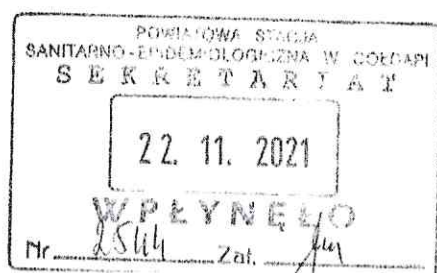 POWIATOWA STACJA
SANITARNO-EPIDEMIOLOGICZNA W GOŁDAPI
SEKRETARIAT
22. 11. 2021
WPŁYNĘŁO
Nr Zał.